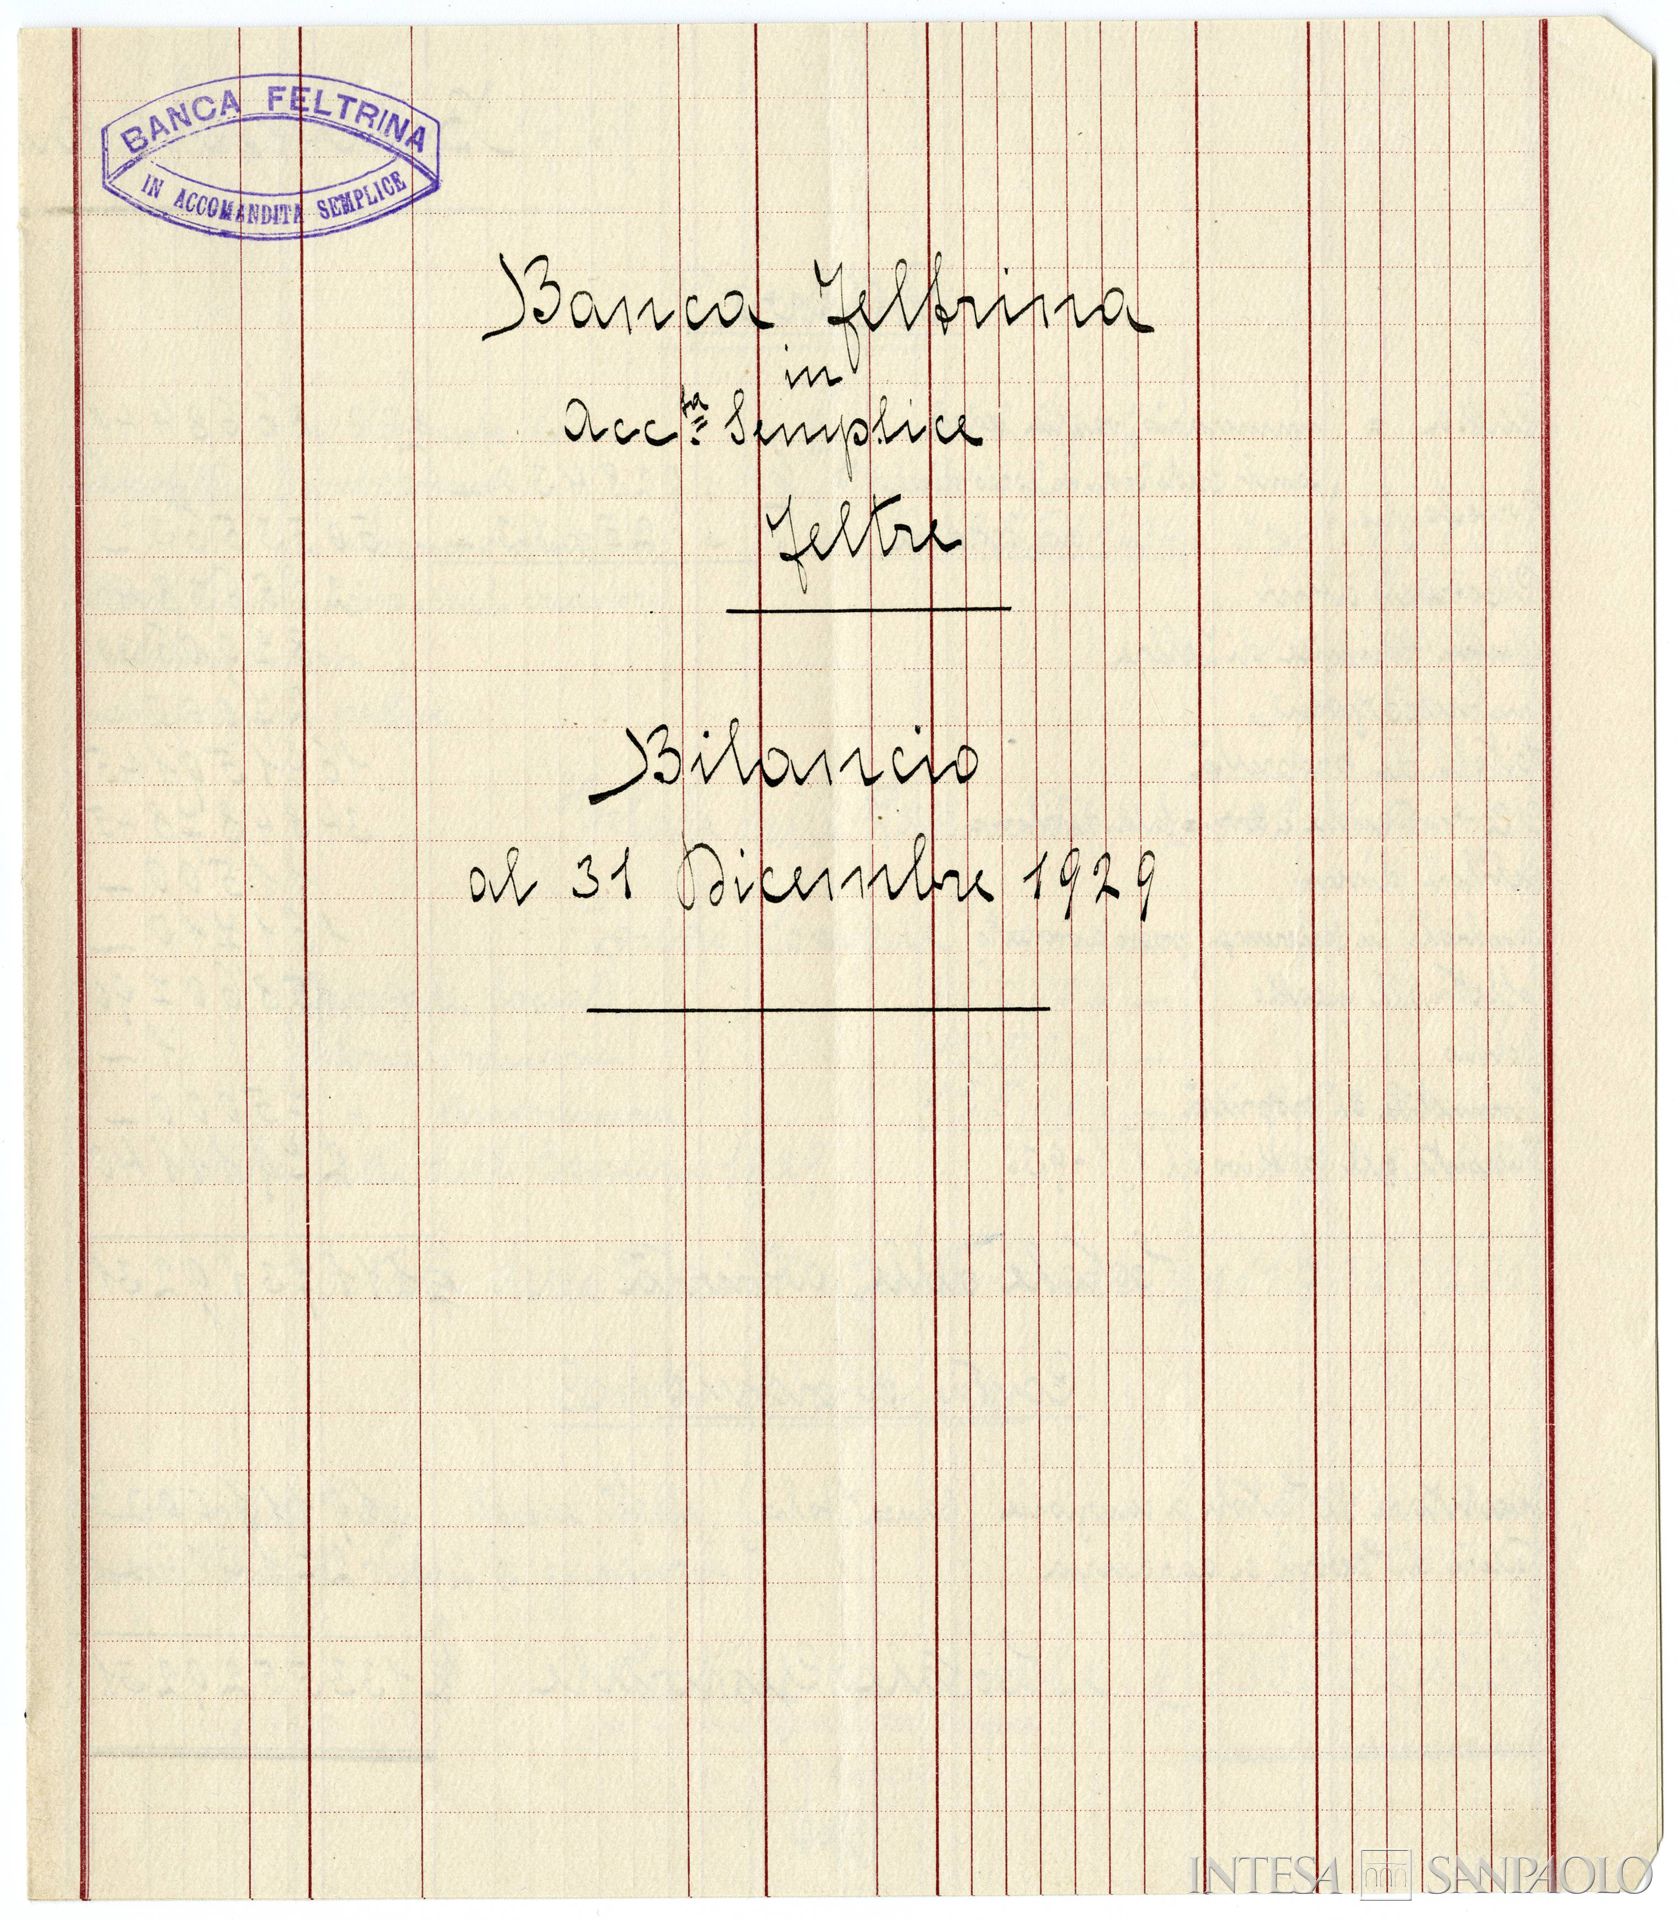 BANCA FELTRINA
IN ACCOMANDITA SEMPLICE
Banca Feltrina
in
Acc.ta Semplice
Feltre
Bilancio
al 31 Dicembre 1929
INTESA SANPAOLO